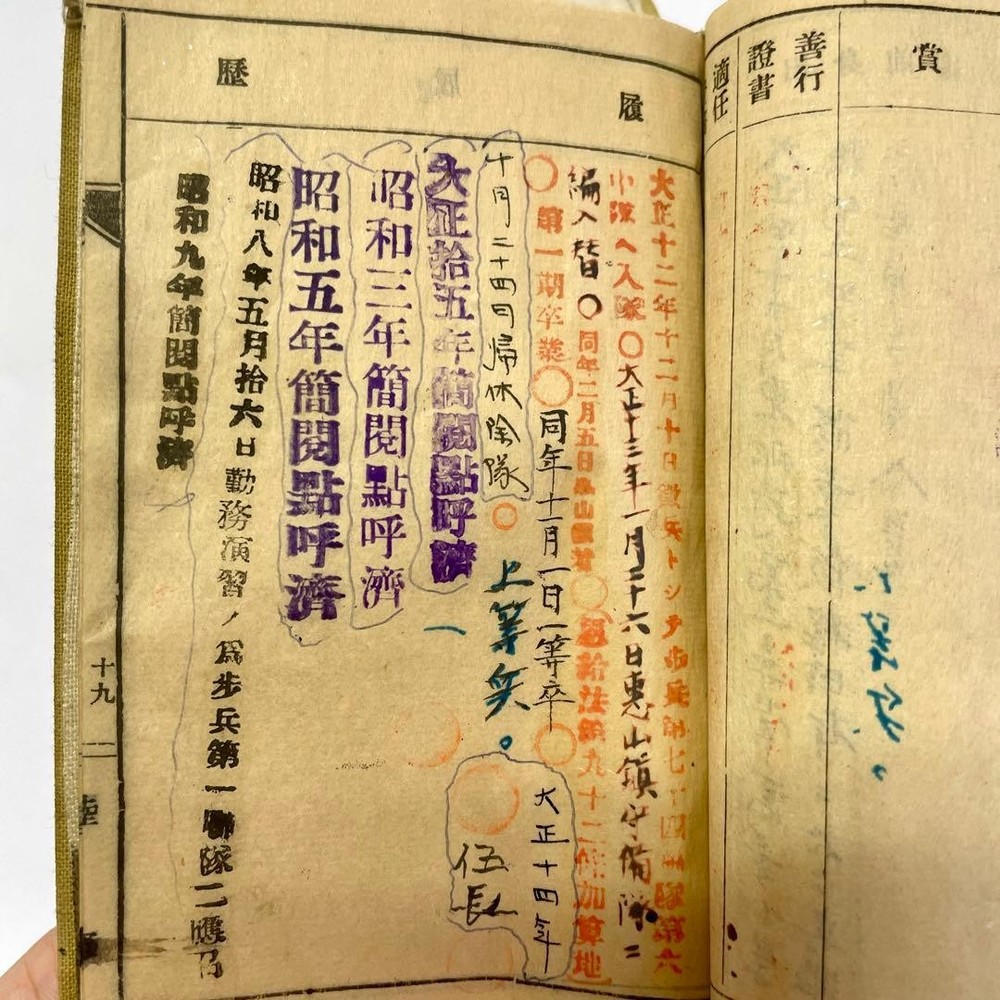 賞
善行
證書
適任
履歷
大正十二年十二月十日徵兵トシテ步兵第七十四聯隊第六
中隊へ入隊〇大正十三年一月二十六日惠山鎮守備隊ニ
編入替〇同年二月五日 〇恩給法第九十二條加算地
〇第一期卒業〇同年十一月一日一等卒〇大正十四年
十月二十四日帰休除隊
上等兵。
伍長
大正拾五年簡閱點呼濟
昭和三年簡閱點呼濟
昭和五年簡閱點呼濟
昭和八年五月拾六日勤務演習ノ爲步兵第一聯隊ニ應召
昭和九年簡閱點呼濟
十九